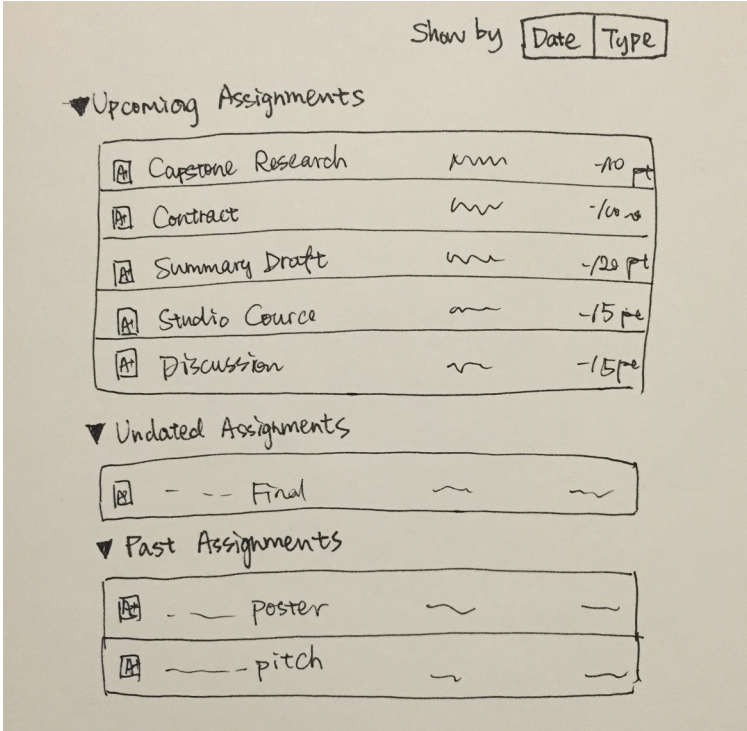 Show by Date Type
▼Upcoming Assignments
A+ Capstone Research -/10 pt
A+ Contract
A+ Summary Draft -/20 pt
A+ Studio Cource -/15 pt
A+ Discussion -/15 pt
▼ Undated Assignments
A+ Final
▼ Past Assignments
A+ poster
A+ pitch